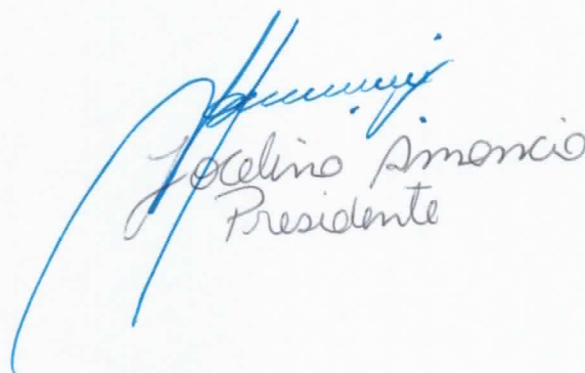 Jocelino Amancio
Presidente